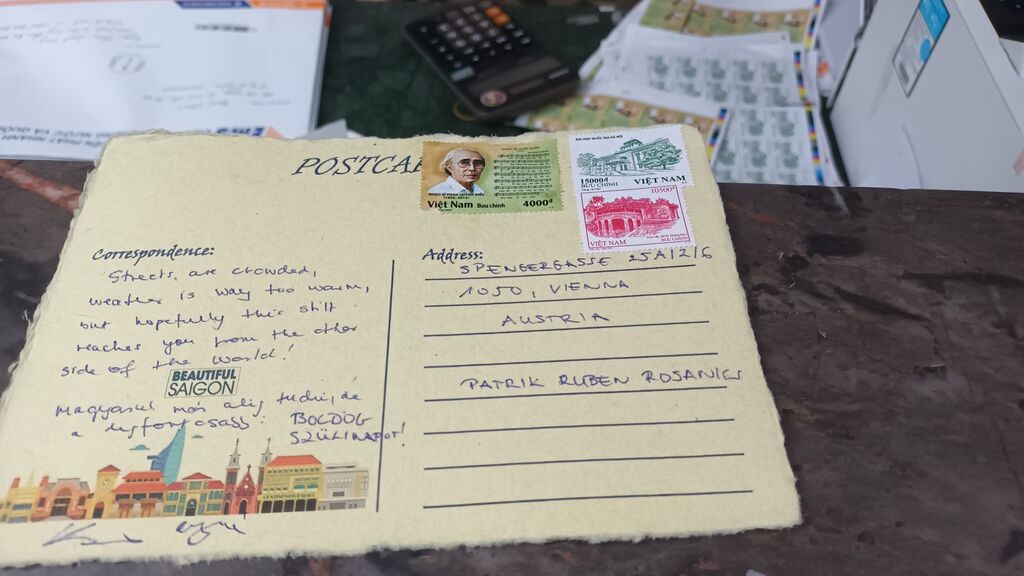 POSTCA
Việt Nam Bưu chính 4000đ
ĐẠI HỌC QUỐC GIA HÀ NỘI
15000đ
BƯU CHÍNH VIỆT NAM
10500đ
VIỆT NAM BƯU CHÍNH
Correspondence:
Streets are crowded,
weather is way too warm,
but hopefully this still
reaches you from the other
side of the world!
BEAUTIFUL
SAIGON
Magyarul már alig tudni, de
a legfontosabb: BOLDOG
SZÜLINAPOT!
Address:
SPENGERGASSE 25A/2/6
1050, VIENNA
AUSTRIA
PATRIK RUBEN ROSANICS